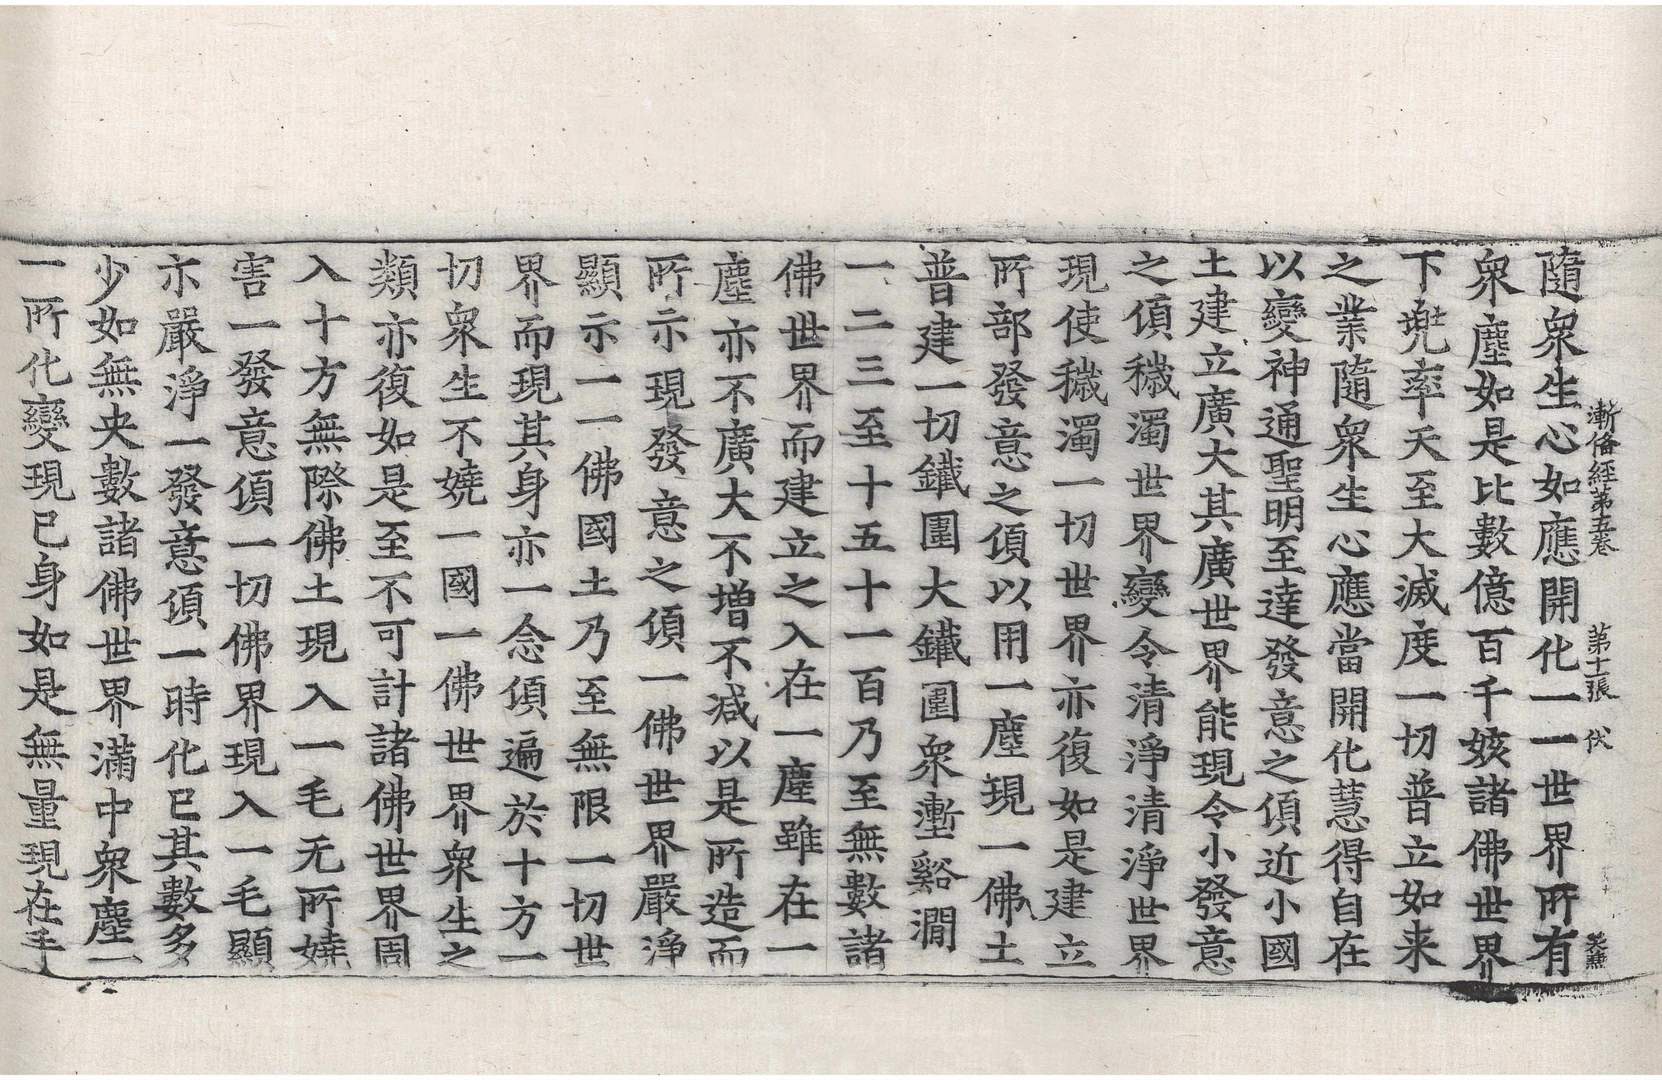 漸備經第五卷　第十二張　伏
隨衆生心如應開化一一世界所有
衆塵如是比數億百千姟諸佛世界
下兜率天至大滅度一切普立如来
之業隨衆生心應當開化慧得自在
以變神通聖明至達發意之頃近小國
土建立廣大其廣世界能現令小發意
之頃穢濁世界變令清淨清淨世界
現使穢濁一切世界亦復如是建立
所部發意之頃以用一塵現一佛土
普建一切鐵圍大鐵圍衆壍谿澗
一二三至十五十一百乃至無數諸
佛世界而建立之入在一塵雖在一
塵亦不廣大不增不减以是所造而
所示現發意之頃一佛世界嚴淨
顯示一一佛國土乃至無限一切世
界而現其身亦一念頃遍於十方一
切衆生不嬈一國一佛世界衆生之
類亦復如是至不可計諸佛世界周
入十方無際佛土現入一毛无所嬈
害一發意頃一切佛界現入一毛顯
亦嚴淨一發意頃一時化已其數多
少如無央數諸佛世界滿中衆塵一
一所化變現已身如是無量現在手